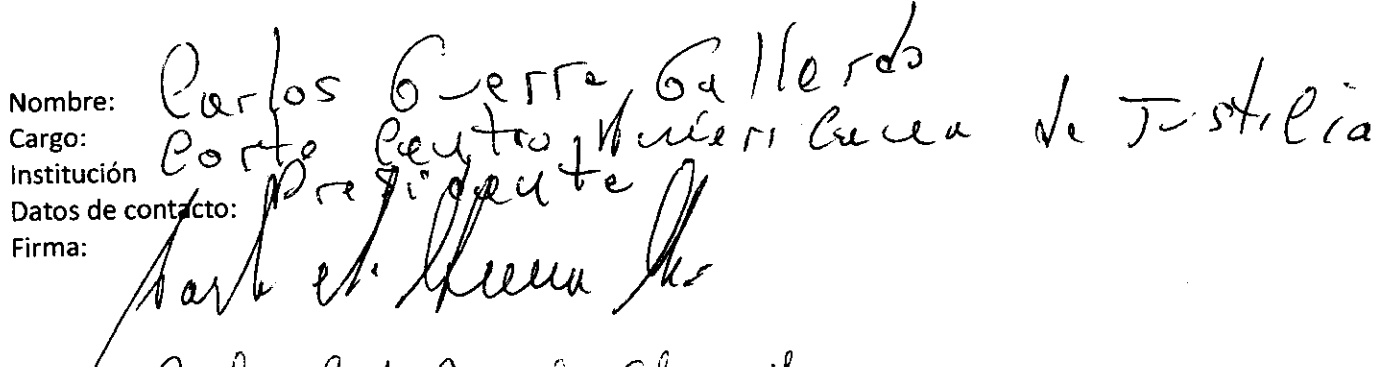 Nombre: Carlos Guerra Gallardo
Cargo: Corte Centro Americana de Justicia
Institución Presidente
Datos de contacto:
Firma: